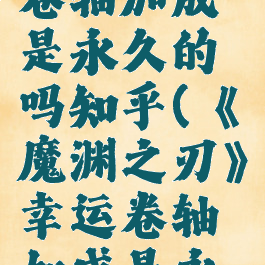 卷轴加成
是永久的
吗知乎(《
魔渊之刃》
幸运卷轴
加成是永